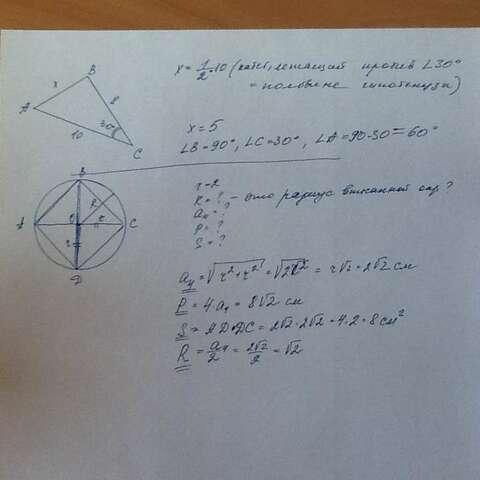 x = 1/2·10 (катет, лежащий против ∠30°
= половине гипотенузы)
B
x
8
A
30°
10
C
x = 5
∠B = 90°, ∠C = 30°, ∠A = 90-30 = 60°
B
R
A
O
C
D
r = 2
R = ? - это радиус вписанной окр?
a₄ = ?
P = ?
S = ?
a₄ = √r²+r² = √2r² = r√2 = 2√2 см
P = 4·a₄ = 8√2 см
S = AD·DC = 2√2·2√2 = 4·2 = 8 см²
R = a₄/2 = 2√2/2 = √2